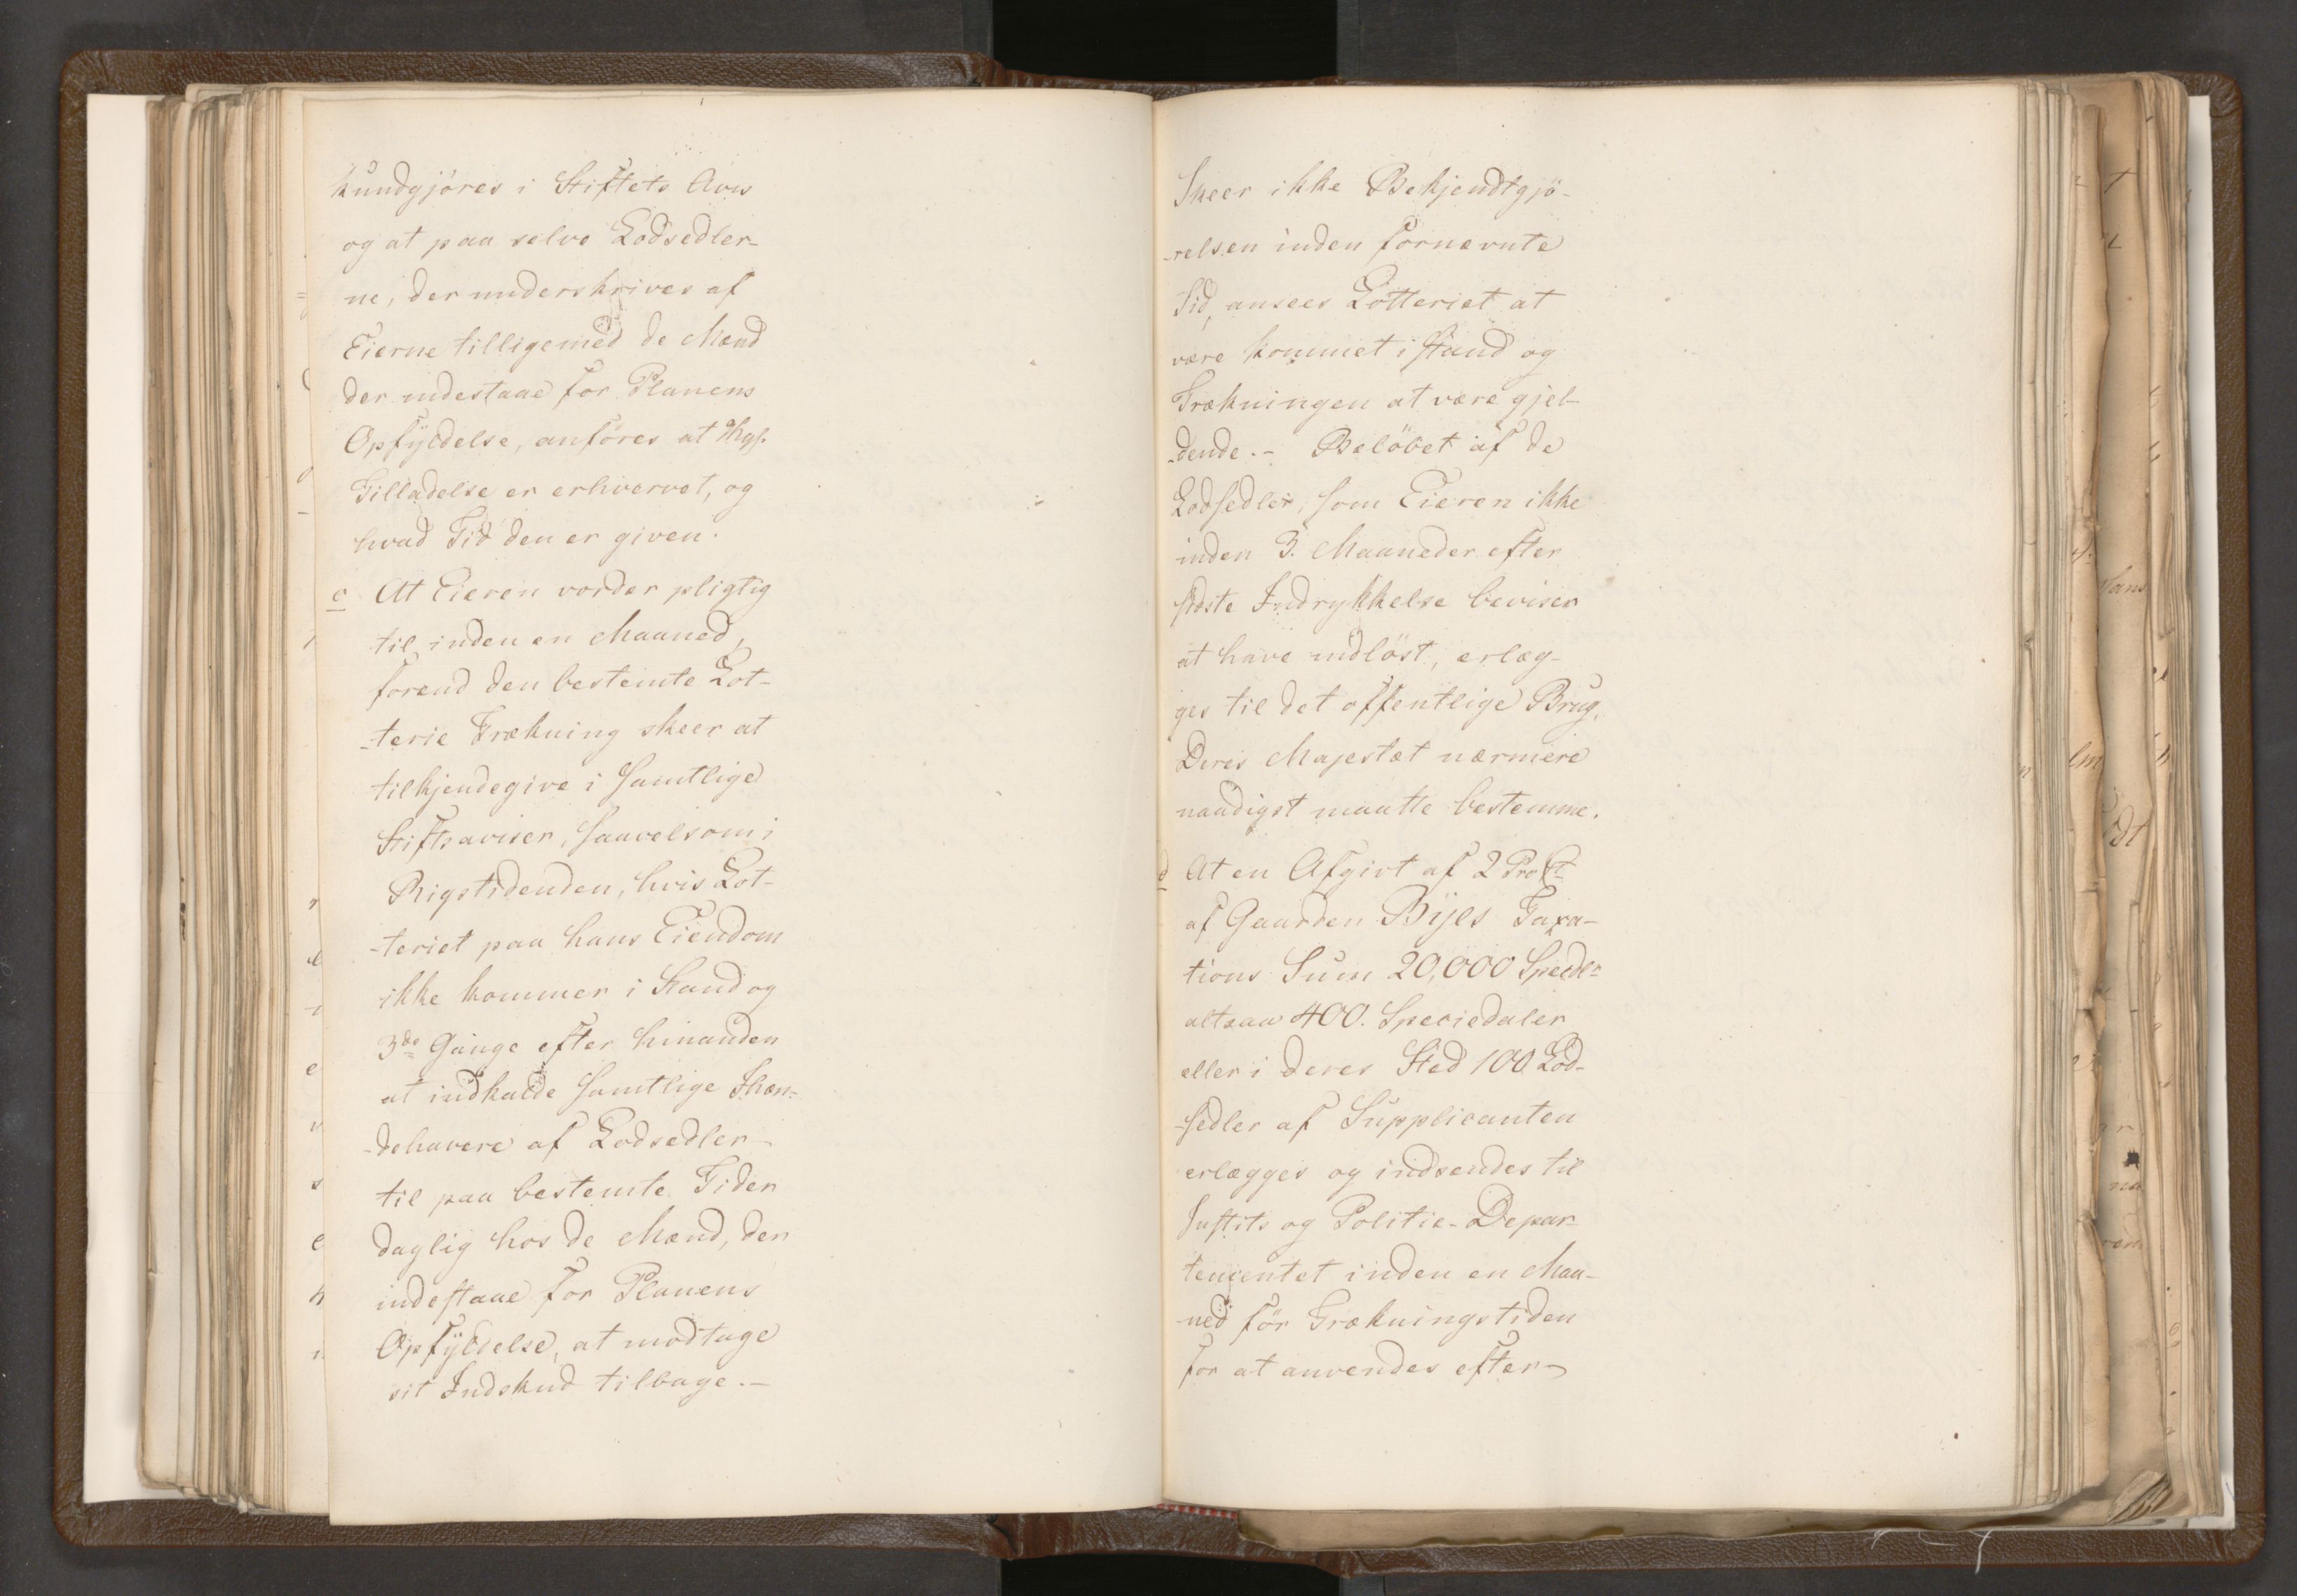 kundgjøres i Stiftets Avis
og at paa selve Lodsedler-
ne, der underskrives af
Eierne tilligemed de Mænd
der indestaae for Planens
Opfyldelse, anføres at
Tilladelse er erhvervet, og
hvad Tid den er given.
c At Eieren vorder pligtig
til inden en Maaned,
forend den bestemte Lot-
-terie Trækning skeer at
tilkjendegive i samtlige
Stiftsaviser, saavelsom i
Rigstidenden, hvis Lot-
-teriet paa hans Eiendom
ikke kommer i Stand og
3de Gange efter hinanden
at indkalde samtlige Ihæn-
-dehavere af Lodsedler-
til paa bestemte Tider
daglig hos de Mænd, der
indestaae for Planens
Opfyldelse, at modtage
sit Indskud tilbage.-
Skeer ikke Bekjendtgjö-
-relsen inden fornævnte
Tid, ansees Lotteriet at
være kommet i stand og
Trækningen at være gjel-
-dende.- Belöbet af de
Lodsedler, som Eieren ikke
inden 3. Maaneder efter
sidste Indrykkelse beviser
at have indlöst, erlæg-
ges til det offentlige Brug,
Deres Majestæt nærmere
naadigst maatte bestemme.
d At en Afgivt af 2 Pro Ct
af Gaarden Byes Taxa-
tions Sum 20,000 Specdlr
altsaa 400. Speciedaler
eller i deres Sted 100 Lod-
-sedler af Supplicanten
erlægges og indsendes til
Justits og Politie-Depar-
tementet inden en Maa-
-ned för Trækningstiden
for at anvendes efter-